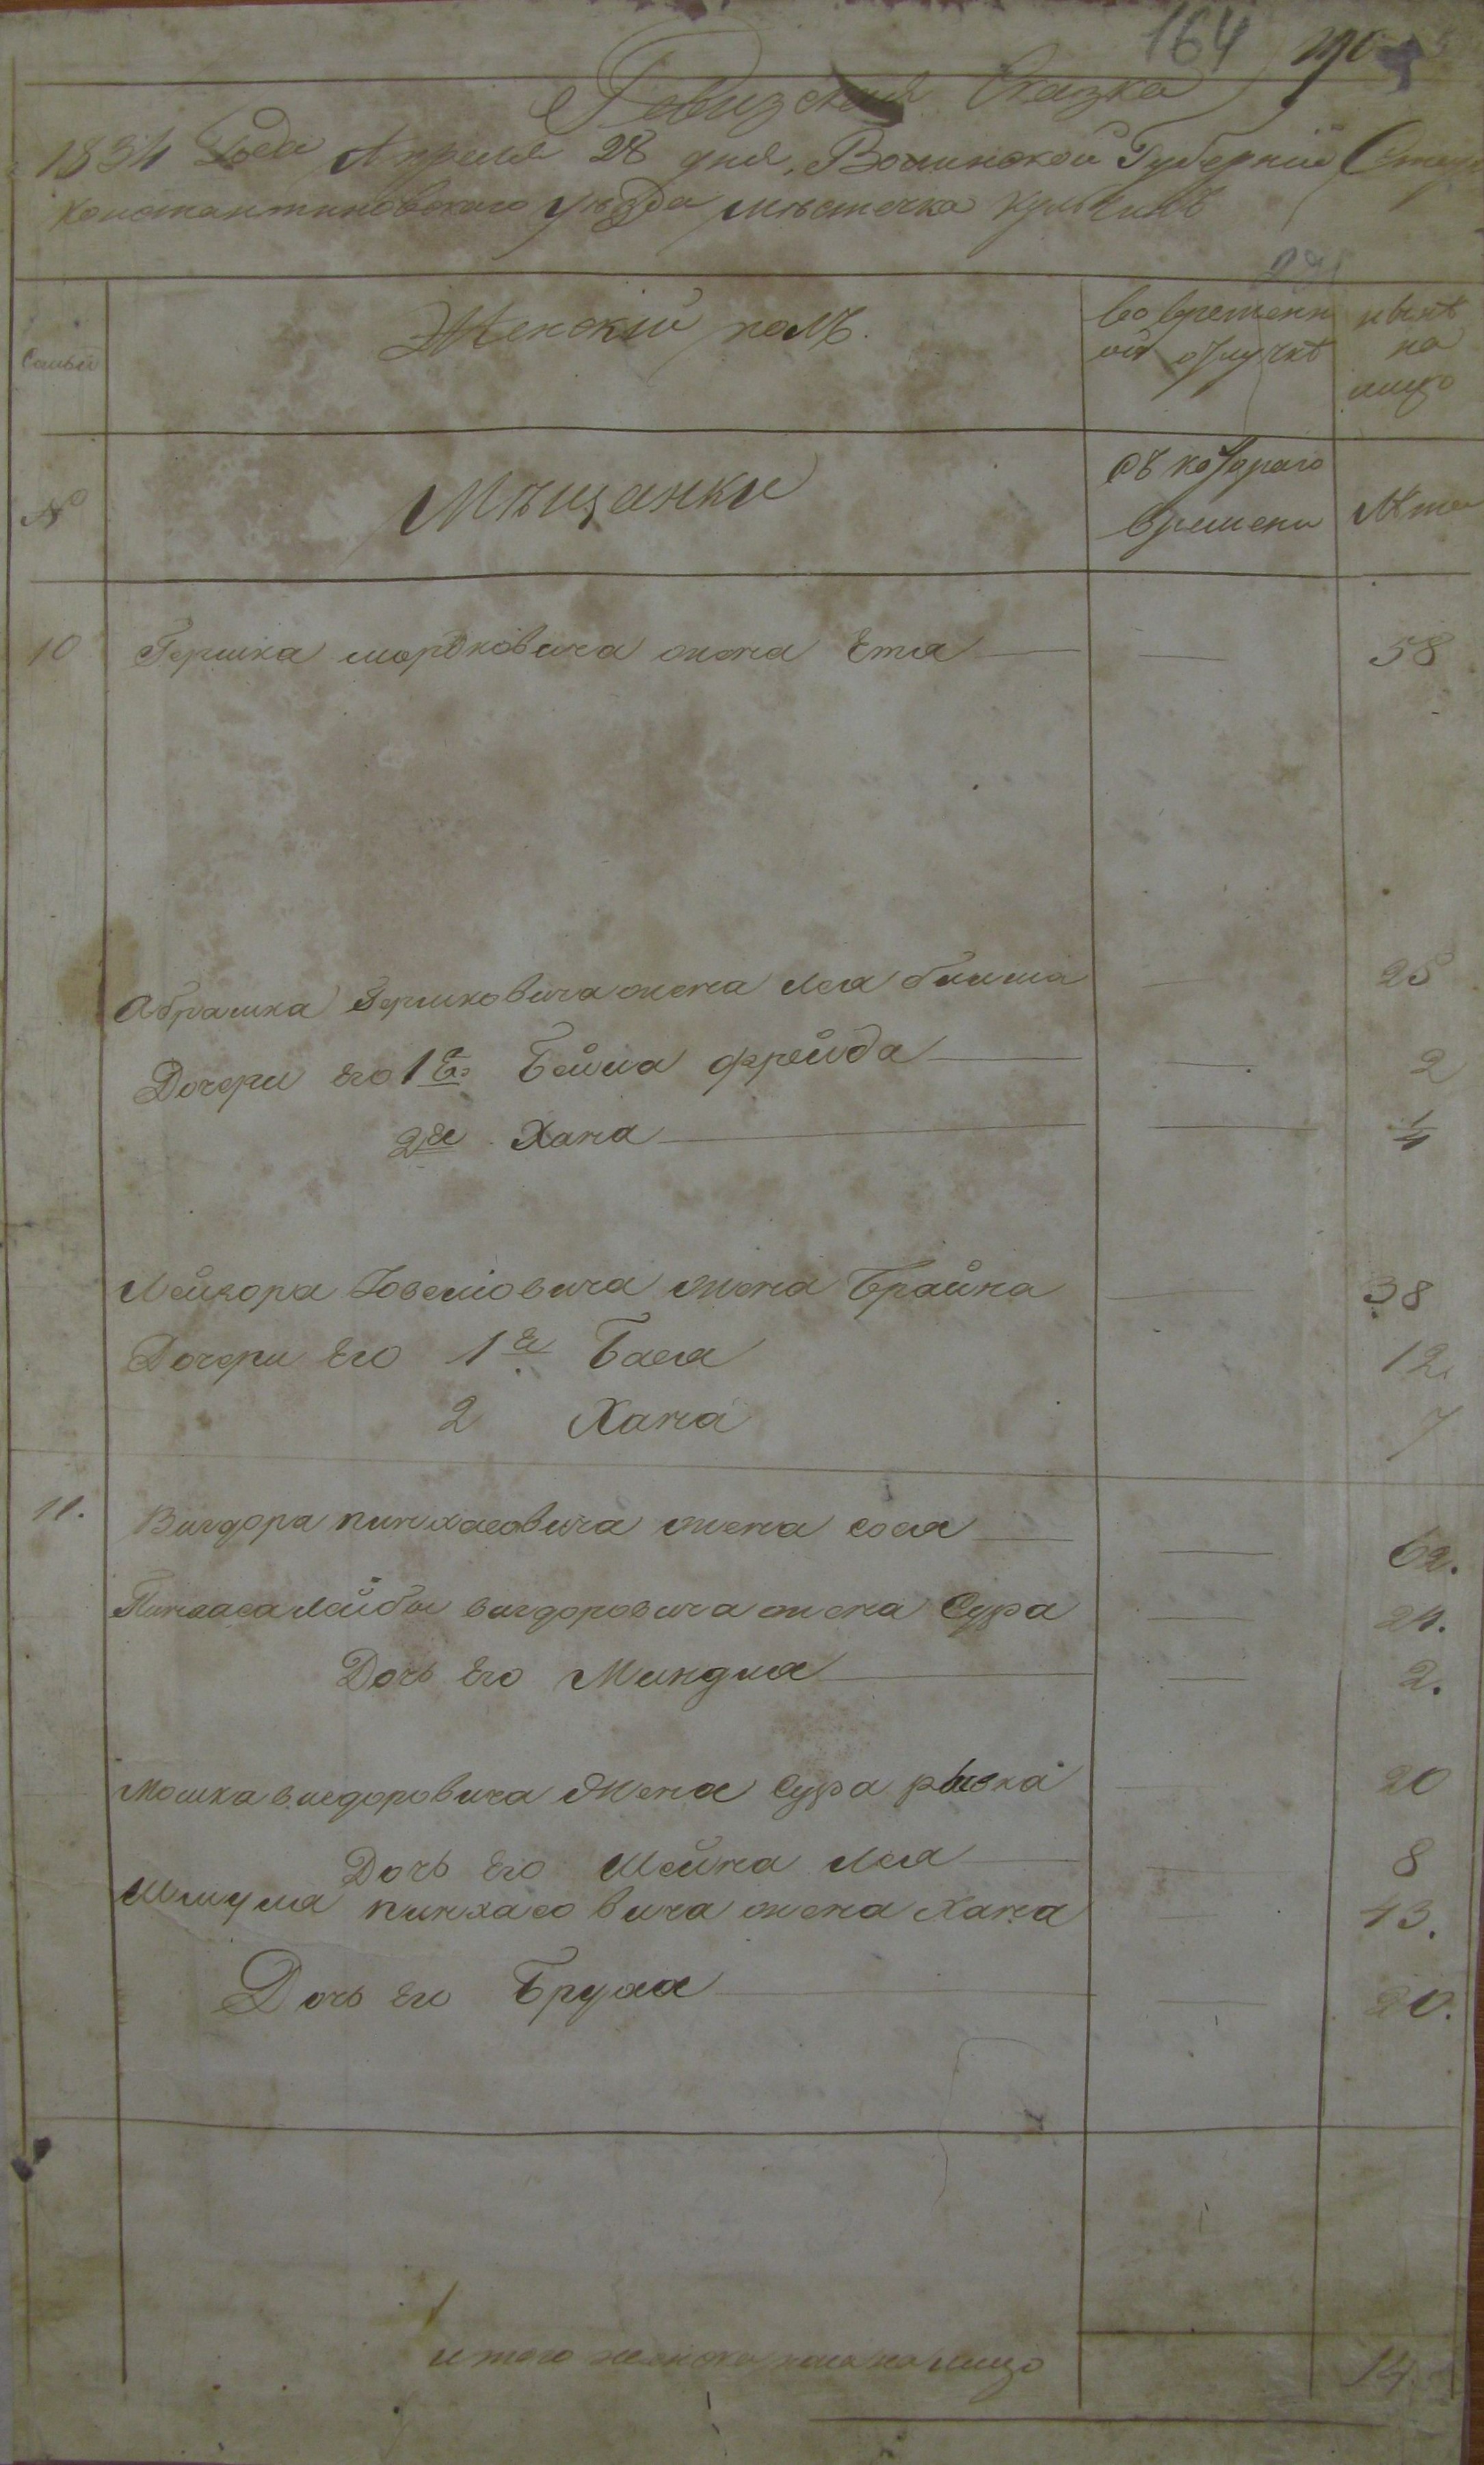 164
Ревизская Сказка
1834 Года Апреля 28 дня, Волинской Губернiи Старо
константиновского уѣзда мѣстечка Кульчинъ
Семьи Женскiй полъ. во временн нынѣ
ой отлучкѣ на
лицо
№ Мѣщанки съ котораго Лѣта
времени
10 Гершка мордковича жена Ета — — 58
Абрамка Гершковича жена Леа блима — 25
Дочери Его 1я Бейла фрейда — — 2
2я Хана — — 1/4
Лейзора Іовеліовича жена Брайна — 38
Дочери Его 1я Бася 12
2 Хана 7
11. Вигдора пинхасовича жена сося — — 62.
Пинхаса Лейбы вигдоровича жена Сура — 24.
Дочь Его Миндля — — 2.
Мошка вигдоровича Жена Сура рывка — 20
Дочь Его Шейна Леа — — 8
Шмуля пинхасовича жена Хана — 43.
Дочь Его Бруха — — 20.
итого женска пола на лицо 14